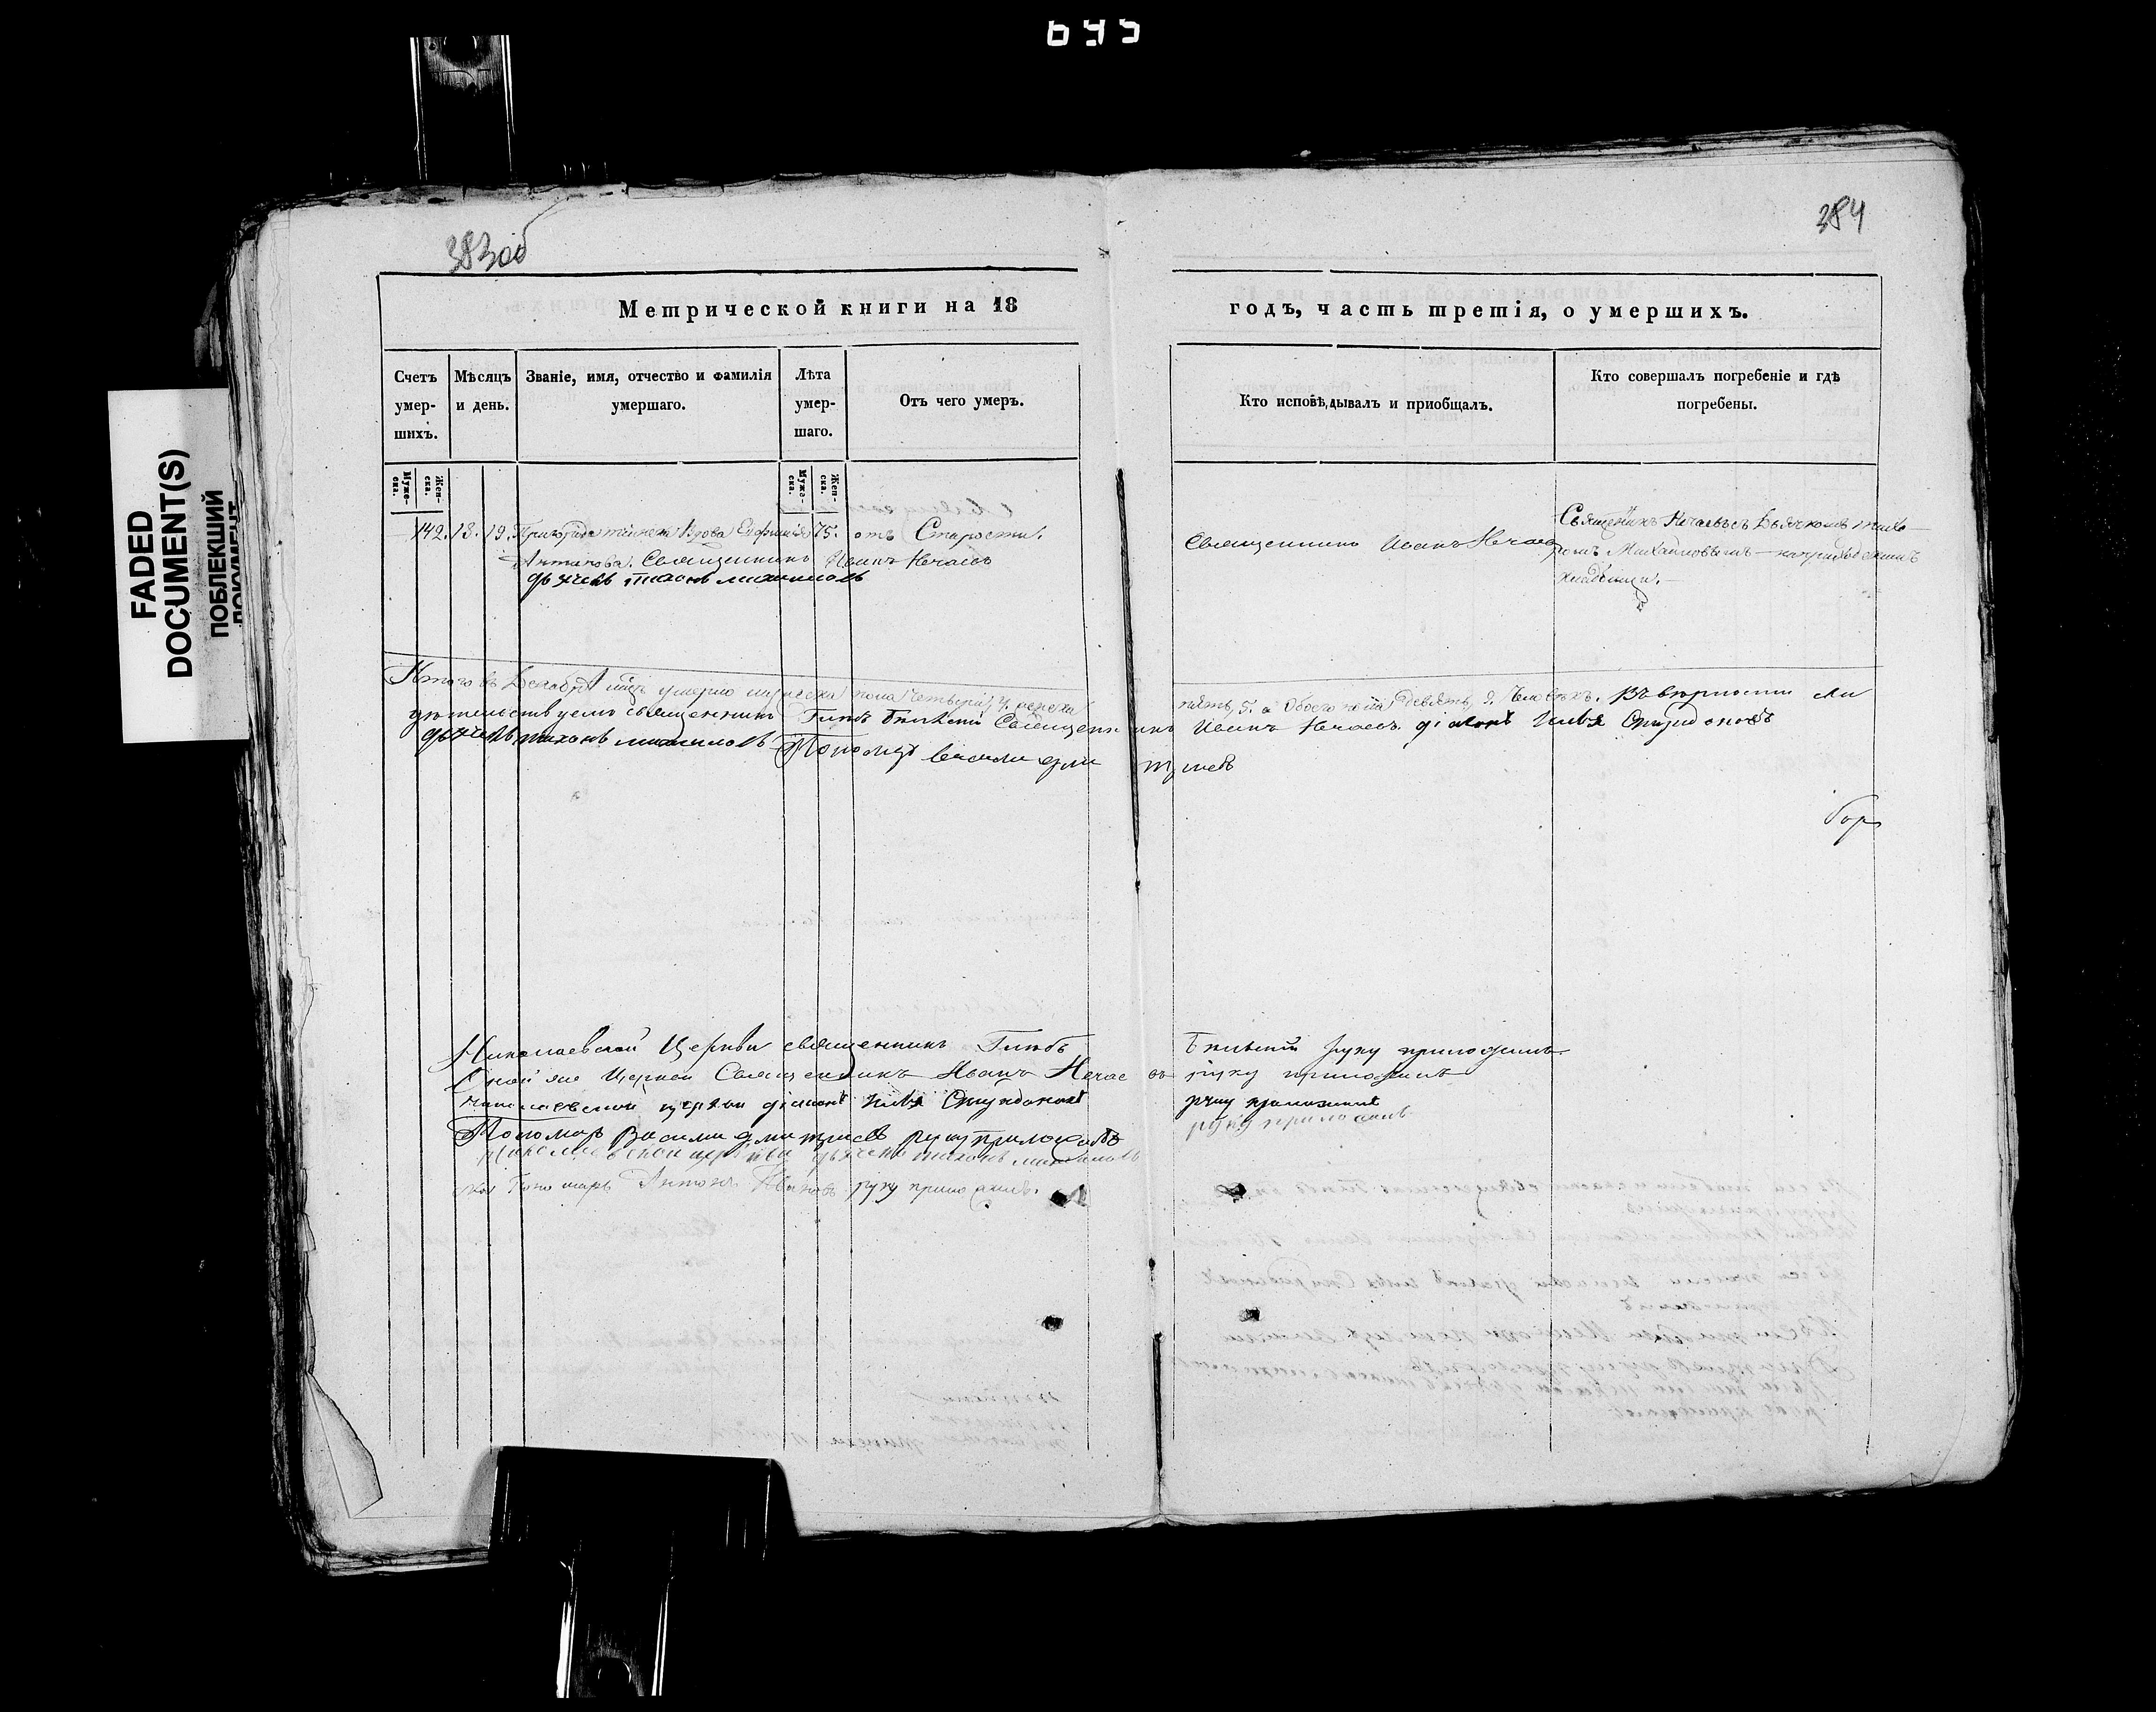 645
FADED
DOCUMENT(S)
ПОБЛЕКШИЙ
ДОКУМЕНТ
383об
384
Метрической книги на 18 годъ, часть третія, о умершихъ.
Счетъ умер-шихъ.
Мѣсяцъ и день.
Званіе, имя, отчество и фамилія умершаго.
Лѣта умер-шаго.
Отъ чего умеръ.
Кто исповѣдывалъ и приобщалъ.
Кто совершалъ погребеніе и гдѣ погребены.
Муже-ска.
Жен-ска.
Муже-ска.
Жен-ска.
142. 18. 19. Вдова 75. отъ Старости.
Антипова. Священникъ Иванъ Нечаевъ
дьячекъ тихонъ михаиловъ
Священникъ Иванъ Нечаевъ
Священникъ Нечаевъ съ Дьячкомъ Тихо-
номъ Михайловымъ
кладбищи.
Итого въ Декабрѣ умерло мужеска пола четыре, 4. женска
пять, 5. а обоего пола девять, 9. Человѣкъ. Въ верности
священникъ Глѣбъ Священникъ Иванъ Нечаевъ діаконъ Илья Спиридоновъ
дьячекъ тихонъ михаиловъ Пономарь василий дми триевъ
Николаевской Церкви священникъ Глѣбъ руку приложилъ
Оной же Церкви Священникъ Иванъ Нечаевъ руку приложилъ
николаевской церкви діаконъ Илья Спиридоновъ руку приложилъ
Пономарь Василий дмитриевъ руку приложилъ
николаевской церкви дьячекъ тихонъ михаиловъ руку приложилъ
Пономарь Антонъ Ивановъ руку приложилъ.